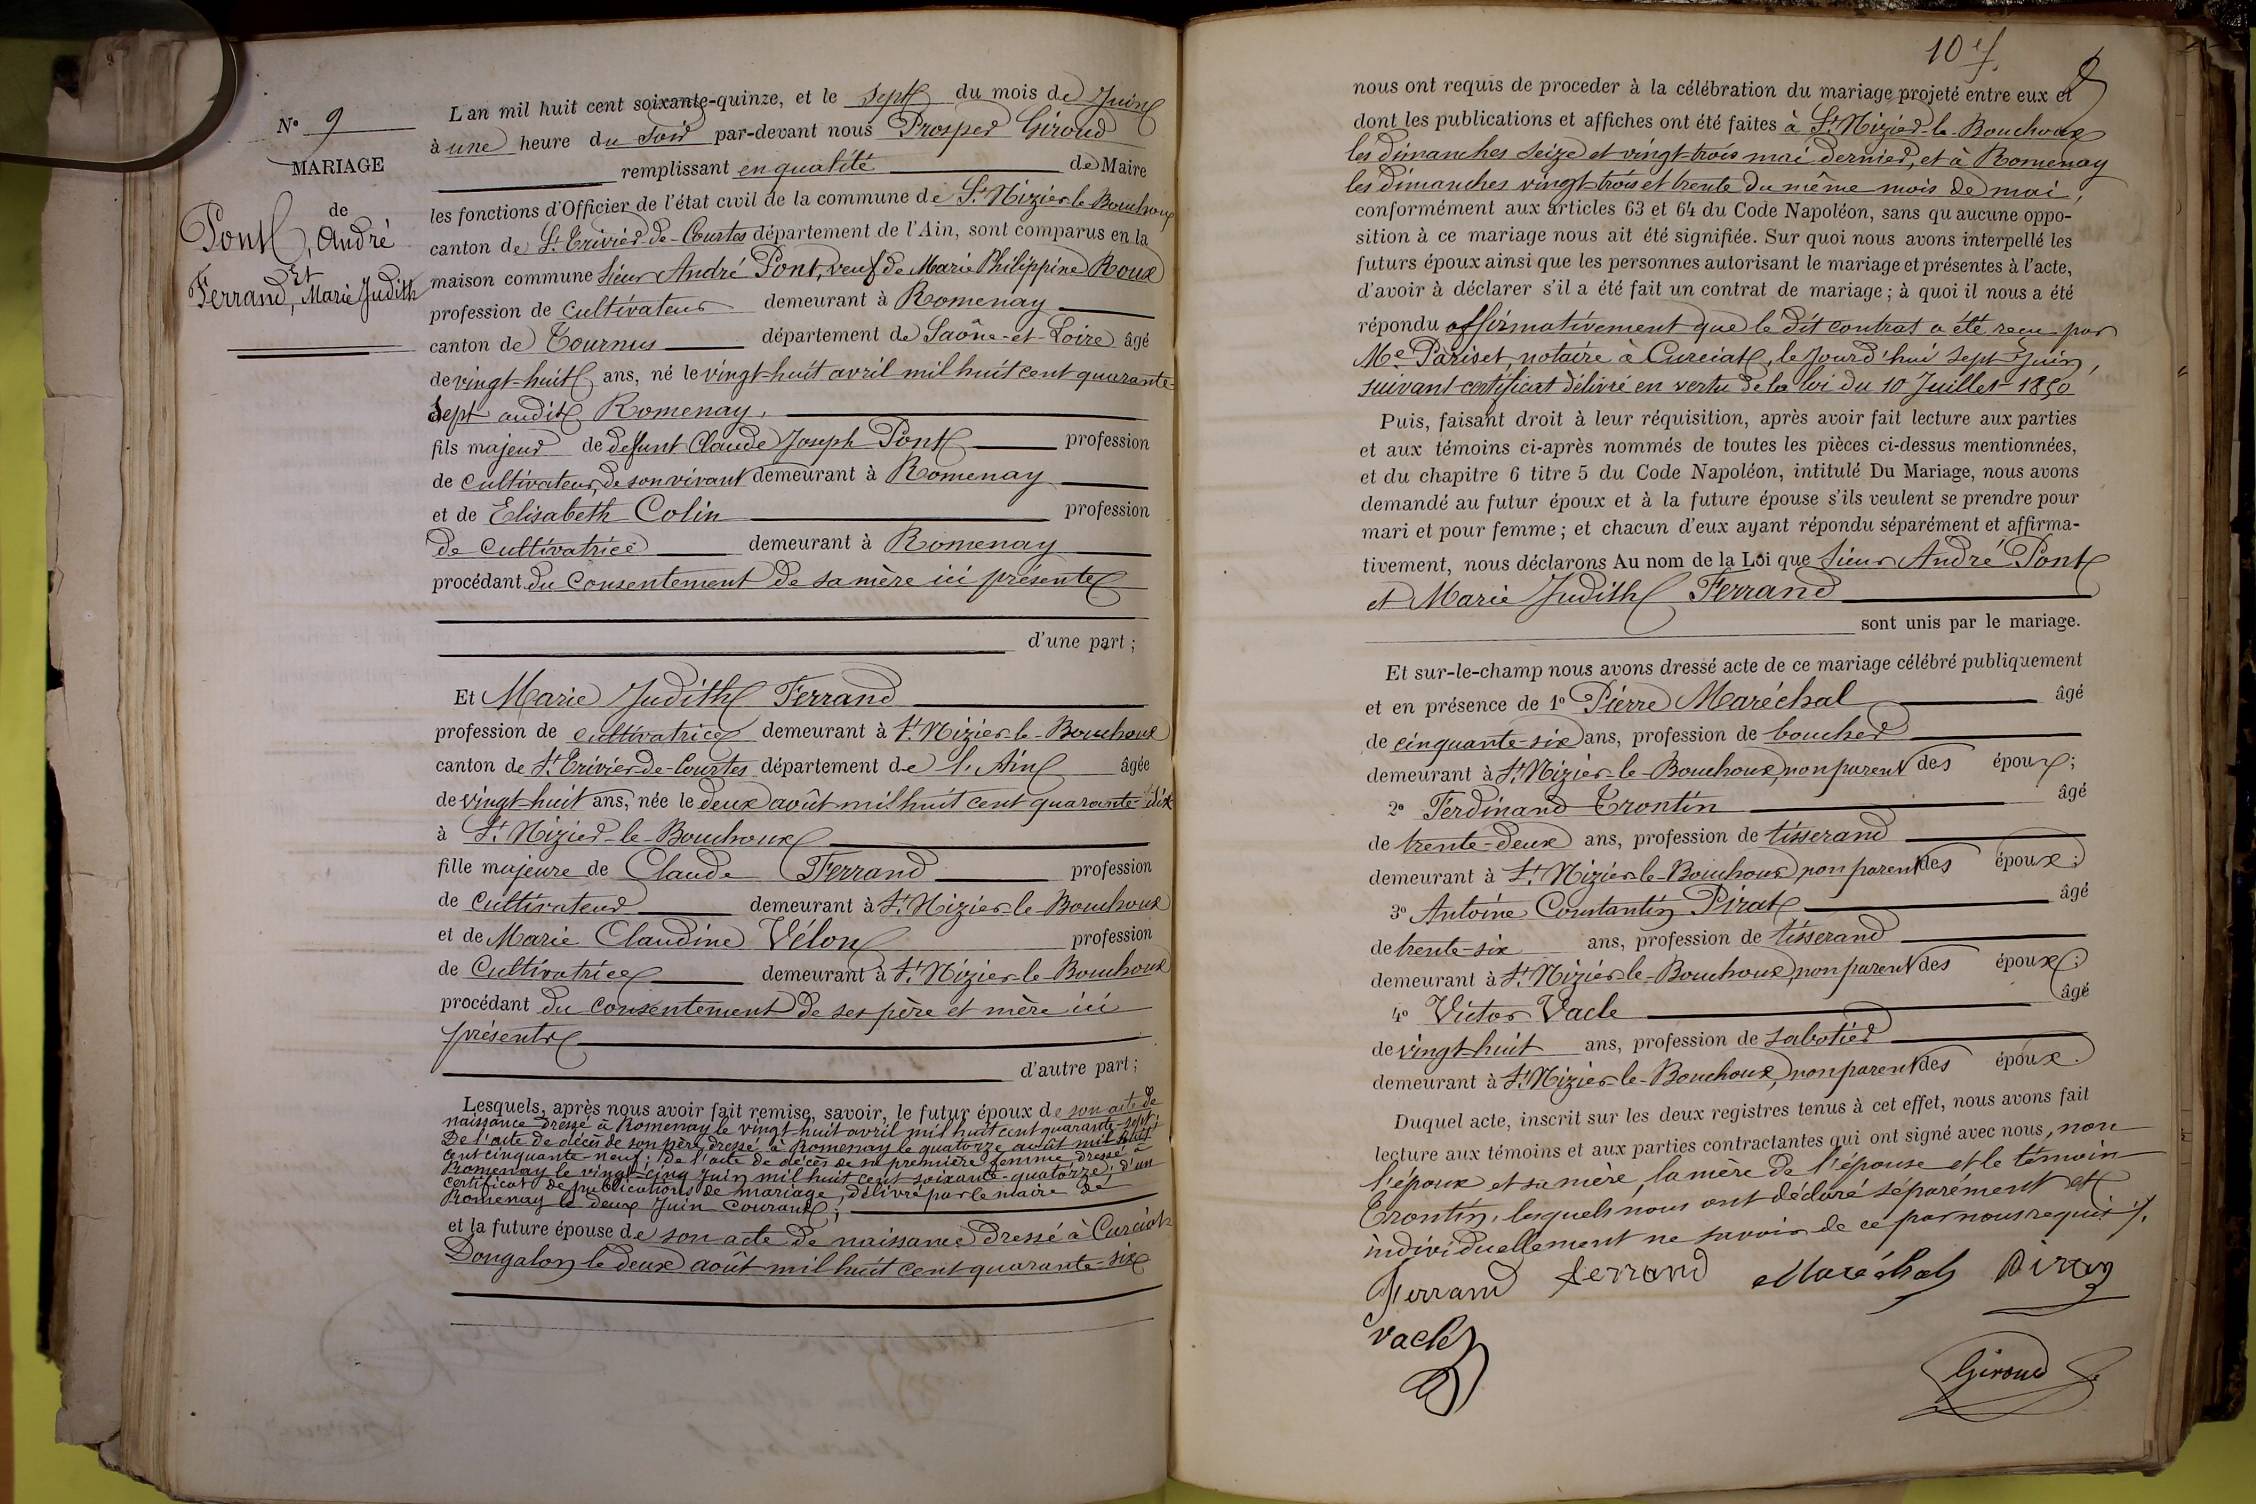 N° 9
MARIAGE
de
Pont, André
et
Ferrand, Marie Judith
L'an mil huit cent soixante-quinze, et le Sept du mois de Juin
à une heure du Soir par-devant nous Prosper Giroud
remplissant en qualité de Maire
les fonctions d'Officier de l'état civil de la commune de St Nizier-le-Bouchoux
canton de St Trivier-de-Courtes département de l'Ain, sont comparus en la
maison commune Sieur André Pont, veuf de Marie Philippine Roux
profession de Cultivateur demeurant à Romenay
canton de Tournus département de Saône-et-Loire âgé
de vingt-huit ans, né le vingt-huit avril mil huit cent quarante-
Sept audit Romenay.
fils majeur de defunt Claude Joseph Pont profession
de Cultivateur, de son vivant demeurant à Romenay
et de Elisabeth Colin profession
de Cultivatrice demeurant à Romenay
procédant du consentement de sa mère ici présente
d'une part ;
Et Marie Judith Ferrand
profession de cultivatrice demeurant à St Nizier-le-Bouchoux
canton de St Trivier-de-Courtes département de l'Ain âgée
de vingt-huit ans, née le deux août mil huit cent quarante-six
à St Nizier-le-Bouchoux
fille majeure de Claude Ferrand profession
de Cultivateur demeurant à St Nizier-le-Bouchoux
et de Marie Claudine Vélon profession
de Cultivatrice demeurant à St Nizier-le-Bouchoux
procédant du consentement de ses père et mère ici
présents
d'autre part ;
Lesquels, après nous avoir fait remise, savoir, le futur époux de son acte de
naissance dressé à Romenay le vingt-huit avril mil huit cent quarante-sept;
De l'acte de décès de son père, dressé à Romenay le quatorze août mil huit
cent cinquante-neuf; De l'acte de décès de sa première femme dressé à
Romenay le vingt-cinq Juin mil huit cent soixante-quatorze; d'un
certificat de publications de mariage, délivré par le maire de
Romenay le deux Juin courant;
et la future épouse de son acte de naissance dressé à Curciat-
Dongalon le deux août mil huit cent quarante-six
10 f.
nous ont requis de procéder à la célébration du mariage projeté entre eux et
dont les publications et affiches ont été faites à St Nizier-le-Bouchoux
les dimanches seize et vingt-trois mai dernier, et à Romenay
les dimanches vingt-trois et trente du même mois de mai,
conformément aux articles 63 et 64 du Code Napoléon, sans qu'aucune oppo-
sition à ce mariage nous ait été signifiée. Sur quoi nous avons interpellé les
futurs époux ainsi que les personnes autorisant le mariage et présentes à l'acte,
d'avoir à déclarer s'il a été fait un contrat de mariage ; à quoi il nous a été
répondu affirmativement que le dit contrat a été reçu par
Me Pariset, notaire à Curciat, le Jourd'hui sept Juin,
suivant certificat délivré en vertu de la loi du 10 Juillet 1850
Puis, faisant droit à leur réquisition, après avoir fait lecture aux parties
et aux témoins ci-après nommés de toutes les pièces ci-dessus mentionnées,
et du chapitre 6 titre 5 du Code Napoléon, intitulé Du Mariage, nous avons
demandé au futur époux et à la future épouse s'ils veulent se prendre pour
mari et pour femme ; et chacun d'eux ayant répondu séparément et affirma-
tivement, nous déclarons Au nom de la Loi que Sieur André Pont
et Marie Judith Ferrand
sont unis par le mariage.
Et sur-le-champ nous avons dressé acte de ce mariage célébré publiquement
et en présence de 1° Pierre Maréchal âgé
de cinquante-six ans, profession de boucher
demeurant à St Nizier-le-Bouchoux, non parent des époux ;
2° Ferdinand Trontin âgé
de trente-deux ans, profession de tisserand
demeurant à St Nizier-le-Bouchoux, non parent des époux ;
3° Antoine Constantin Pirat âgé
de trente-six ans, profession de tisserand
demeurant à St Nizier-le-Bouchoux, non parent des époux ;
4° Victor Vacle âgé
de vingt-huit ans, profession de sabotier
demeurant à St Nizier-le-Bouchoux, non parent des époux.
Duquel acte, inscrit sur les deux registres tenus à cet effet, nous avons fait
lecture aux témoins et aux parties contractantes qui ont signé avec nous, non
l'époux et sa mère, la mère de l'épouse et le témoin
Trontin, lesquels nous ont déclaré séparément et
individuellement ne savoir de ce par nous requis ./.
Ferrand Ferrand Maréchal Pirat
Vacle
Giroud